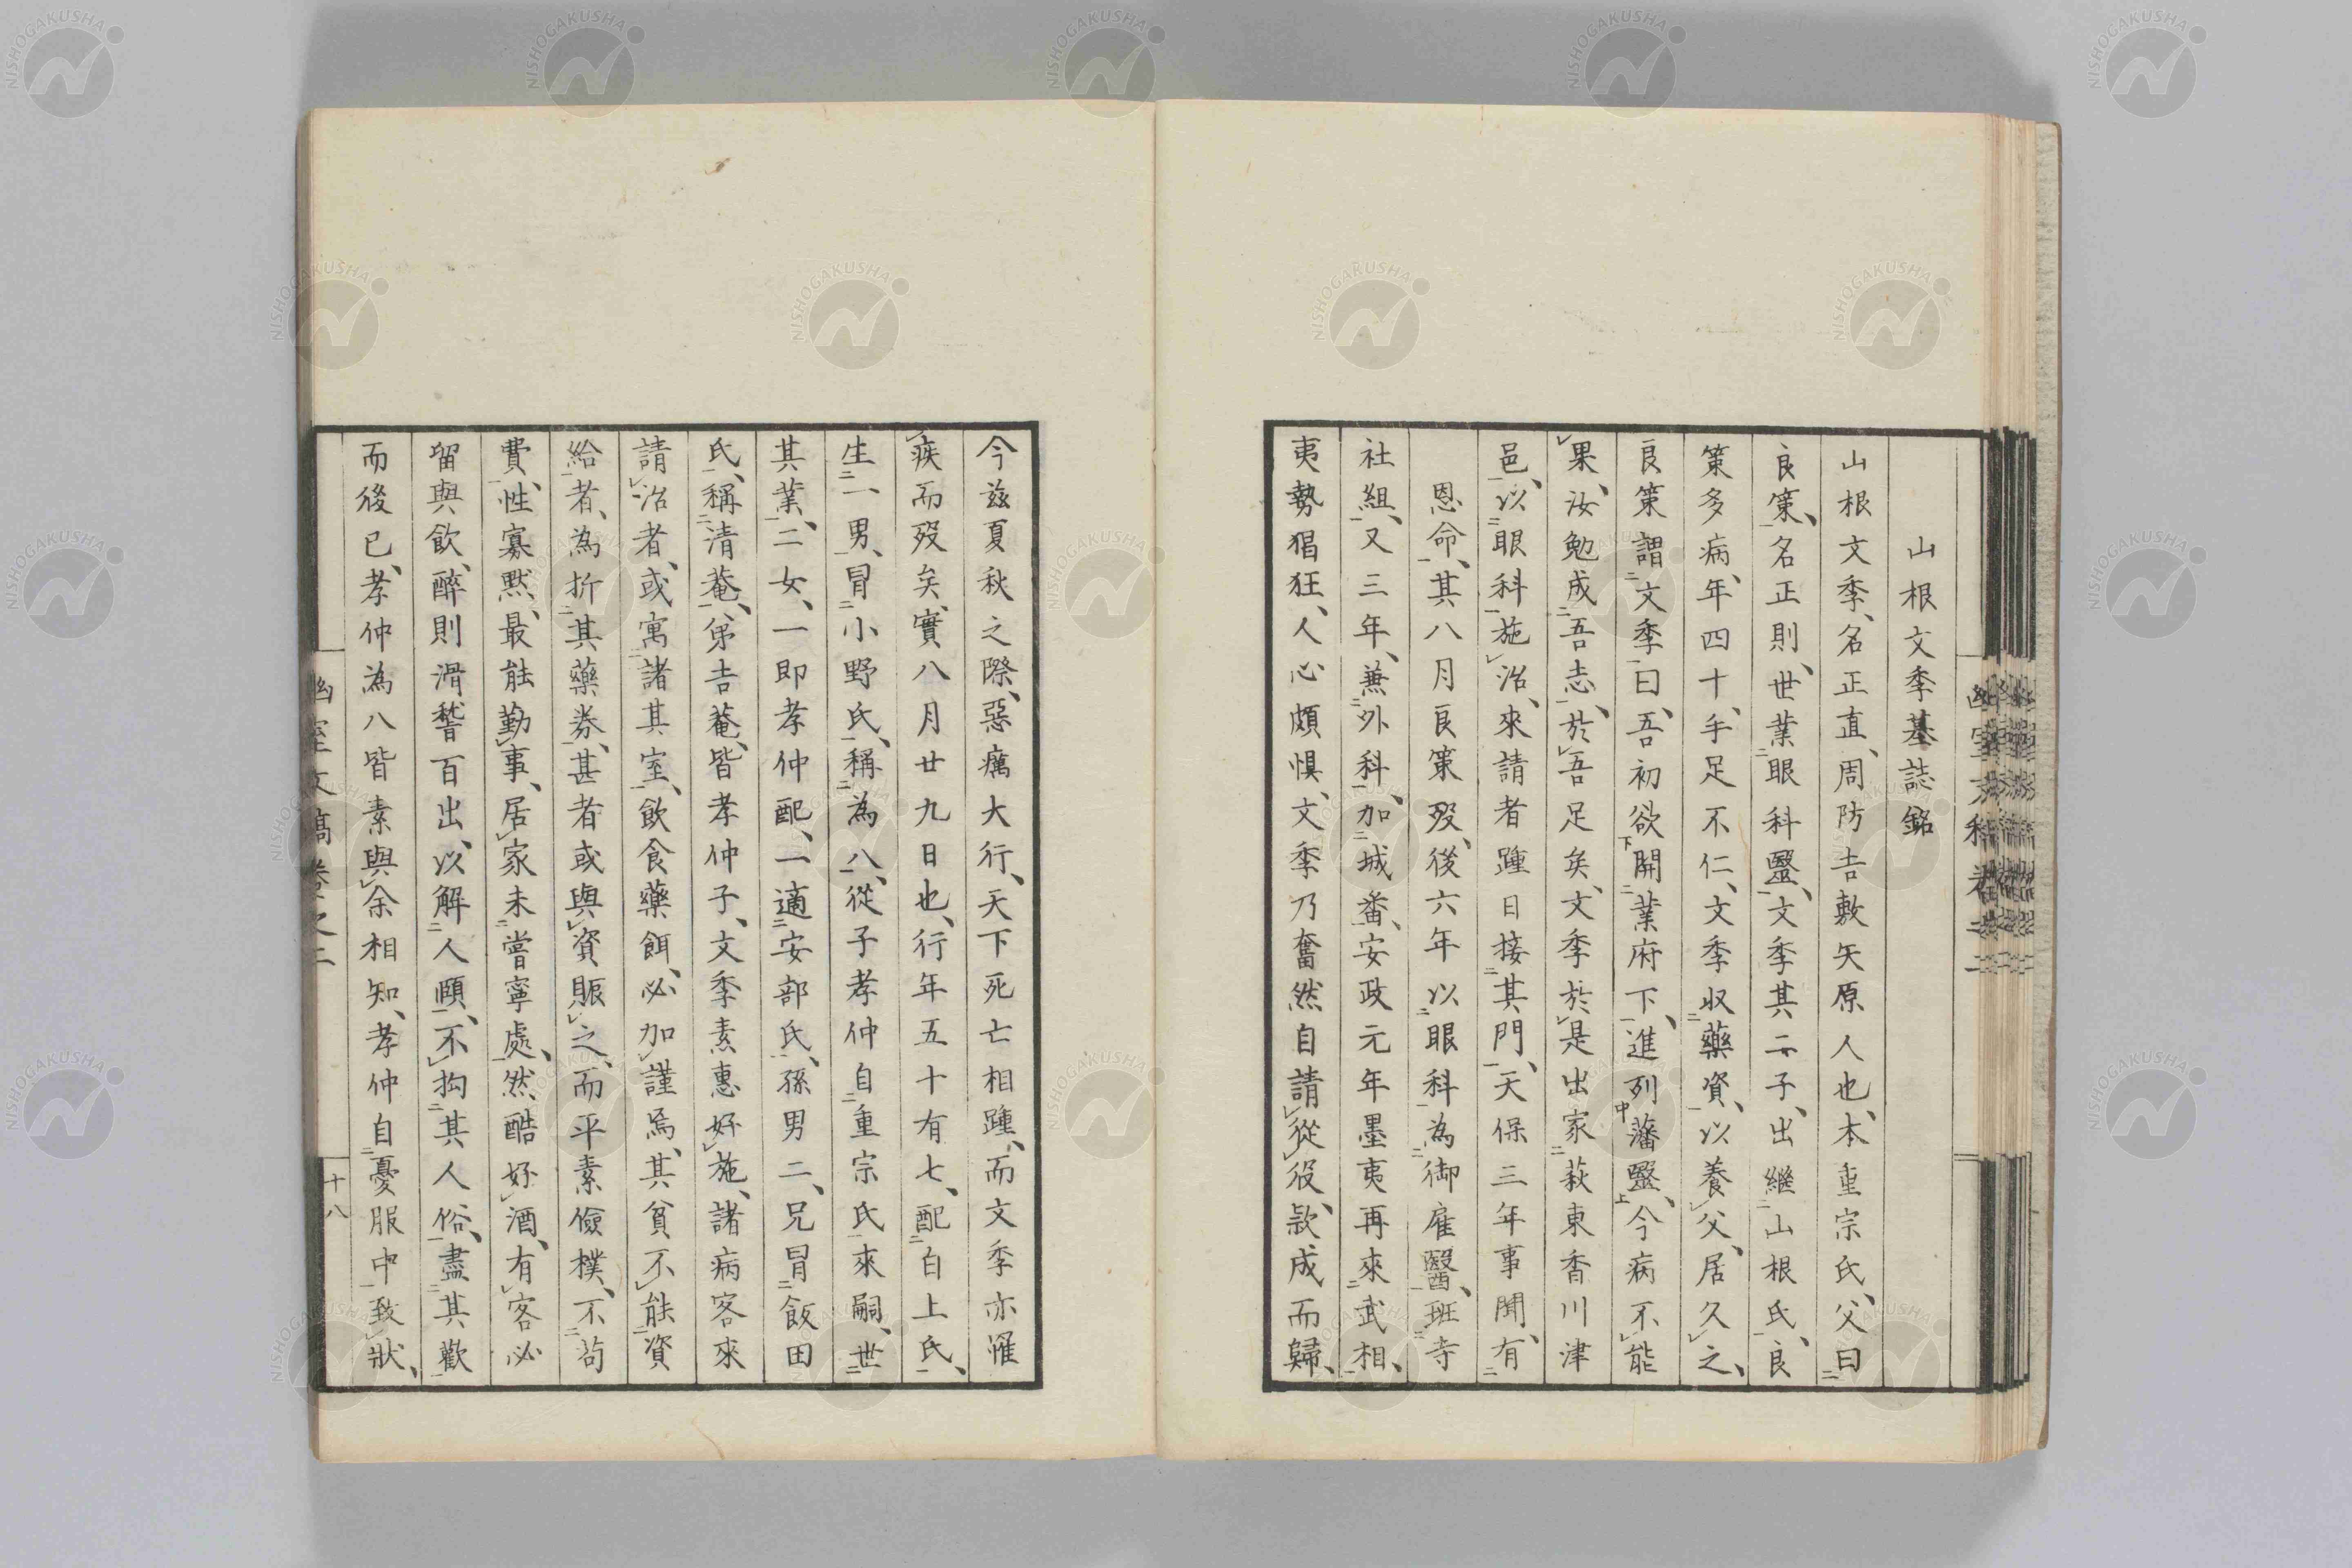 山根文季墓誌銘
山根文季、名正直、周防吉敷矢原人也、本重宗氏、父曰
良策、名正則、世業眼科醫、文季其二子、出繼山根氏、良
策多病、年四十、手足不仁、文季収藥資、以養父、居久之、
良策謂文季曰、吾初欲開業府下、進列藩醫、今病不能
果、汝勉成吾志、於吾足矣、文季於是出家萩東香川津
邑、以眼科施治、來請者踵日接其門、天保三年事聞、有
恩命、其八月良策歿、後六年以眼科為御雇醫、班寺
社組、又三年、兼外科、加城番、安政元年墨夷再來武相、
夷勢猖狂、人心頗惧、文季乃奮然自請從役、款成而歸、
今茲夏秋之際、惡癘大行、天下死亡相踵、而文季亦罹
疾而歿矣、實八月廿九日也、行年五十有七、配白上氏、
生一男、冒小野氏、稱為八、從子孝仲自重宗氏來嗣、世
其業、二女、一即孝仲配、一適安部氏、孫男二、兄冒飯田
氏、稱清菴、弟吉菴、皆孝仲子、文季素惠好施、諸病客來
請治者、或寓諸其室、飲食藥餌、必加謹焉、其貧不能資
給者、為折其藥券、甚者或與資賑之、而平素儉樸、不苟
費、性寡黙、最能勤事、居家未嘗寧處、然酷好酒、有客必
留與飲、醉則滑稽百出、以解人頤、不拘其人俗、盡其歡
而後已、孝仲為八皆素與余相知、孝仲自憂服中致狀、
幽室文稿卷之二
十八